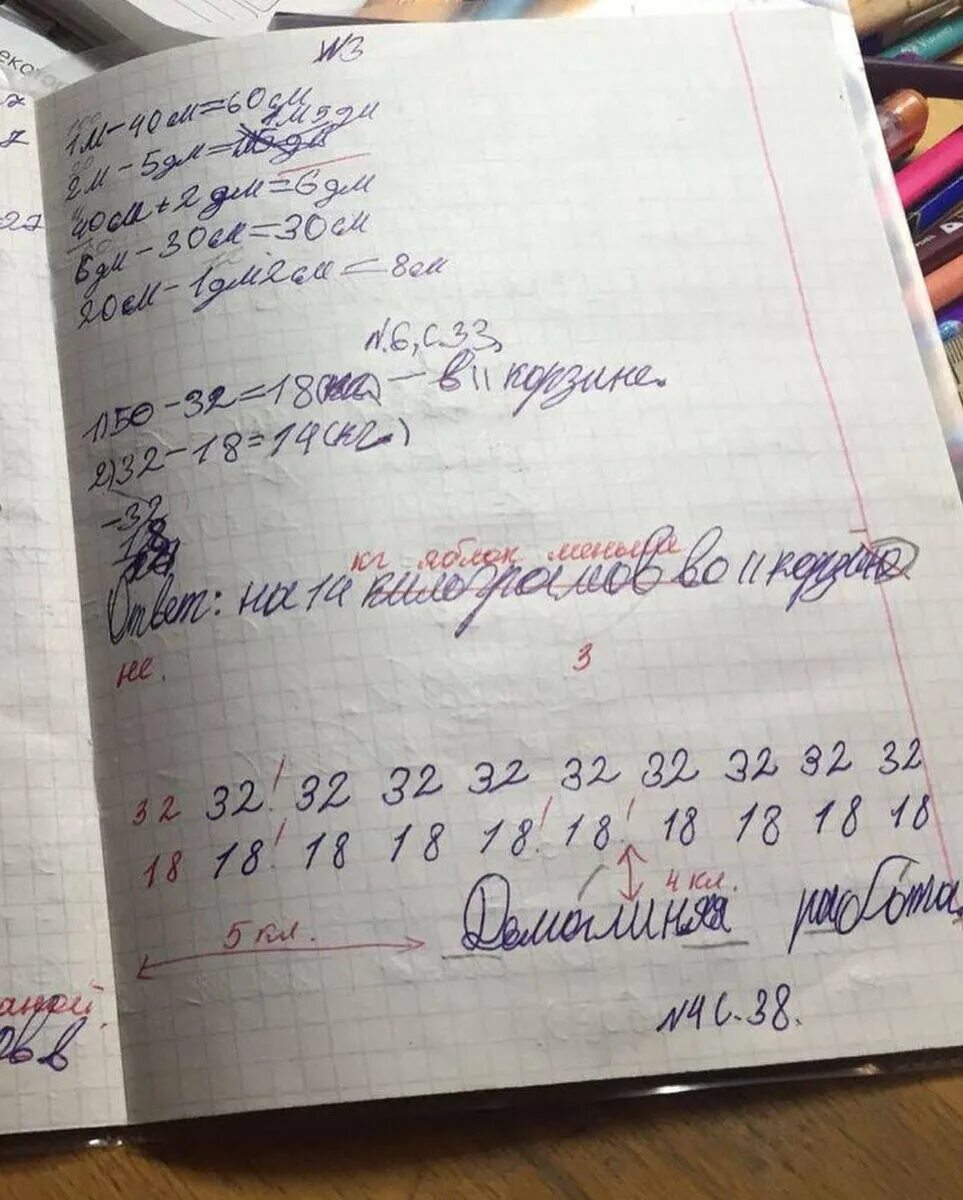 №3
1м-40см=60см
1м5дм
2м-5дм=15дм
40см+2дм=6дм
6дм-30см=30см
20см-1дм2см=8см
№6, с.33,
1)50-32=18(кг) - в II корзине.
2)32-18=14(кг.)
-32
18
кг яблок меньше
Ответ: на 14 килограмов во II корзине
не.
3
32 32! 32 32 32 32 32 32 32 32
18 18! 18 18 18! 18! 18 18 18 18
4кл.
5кл.
Домашняя работа.
№4 с.38.